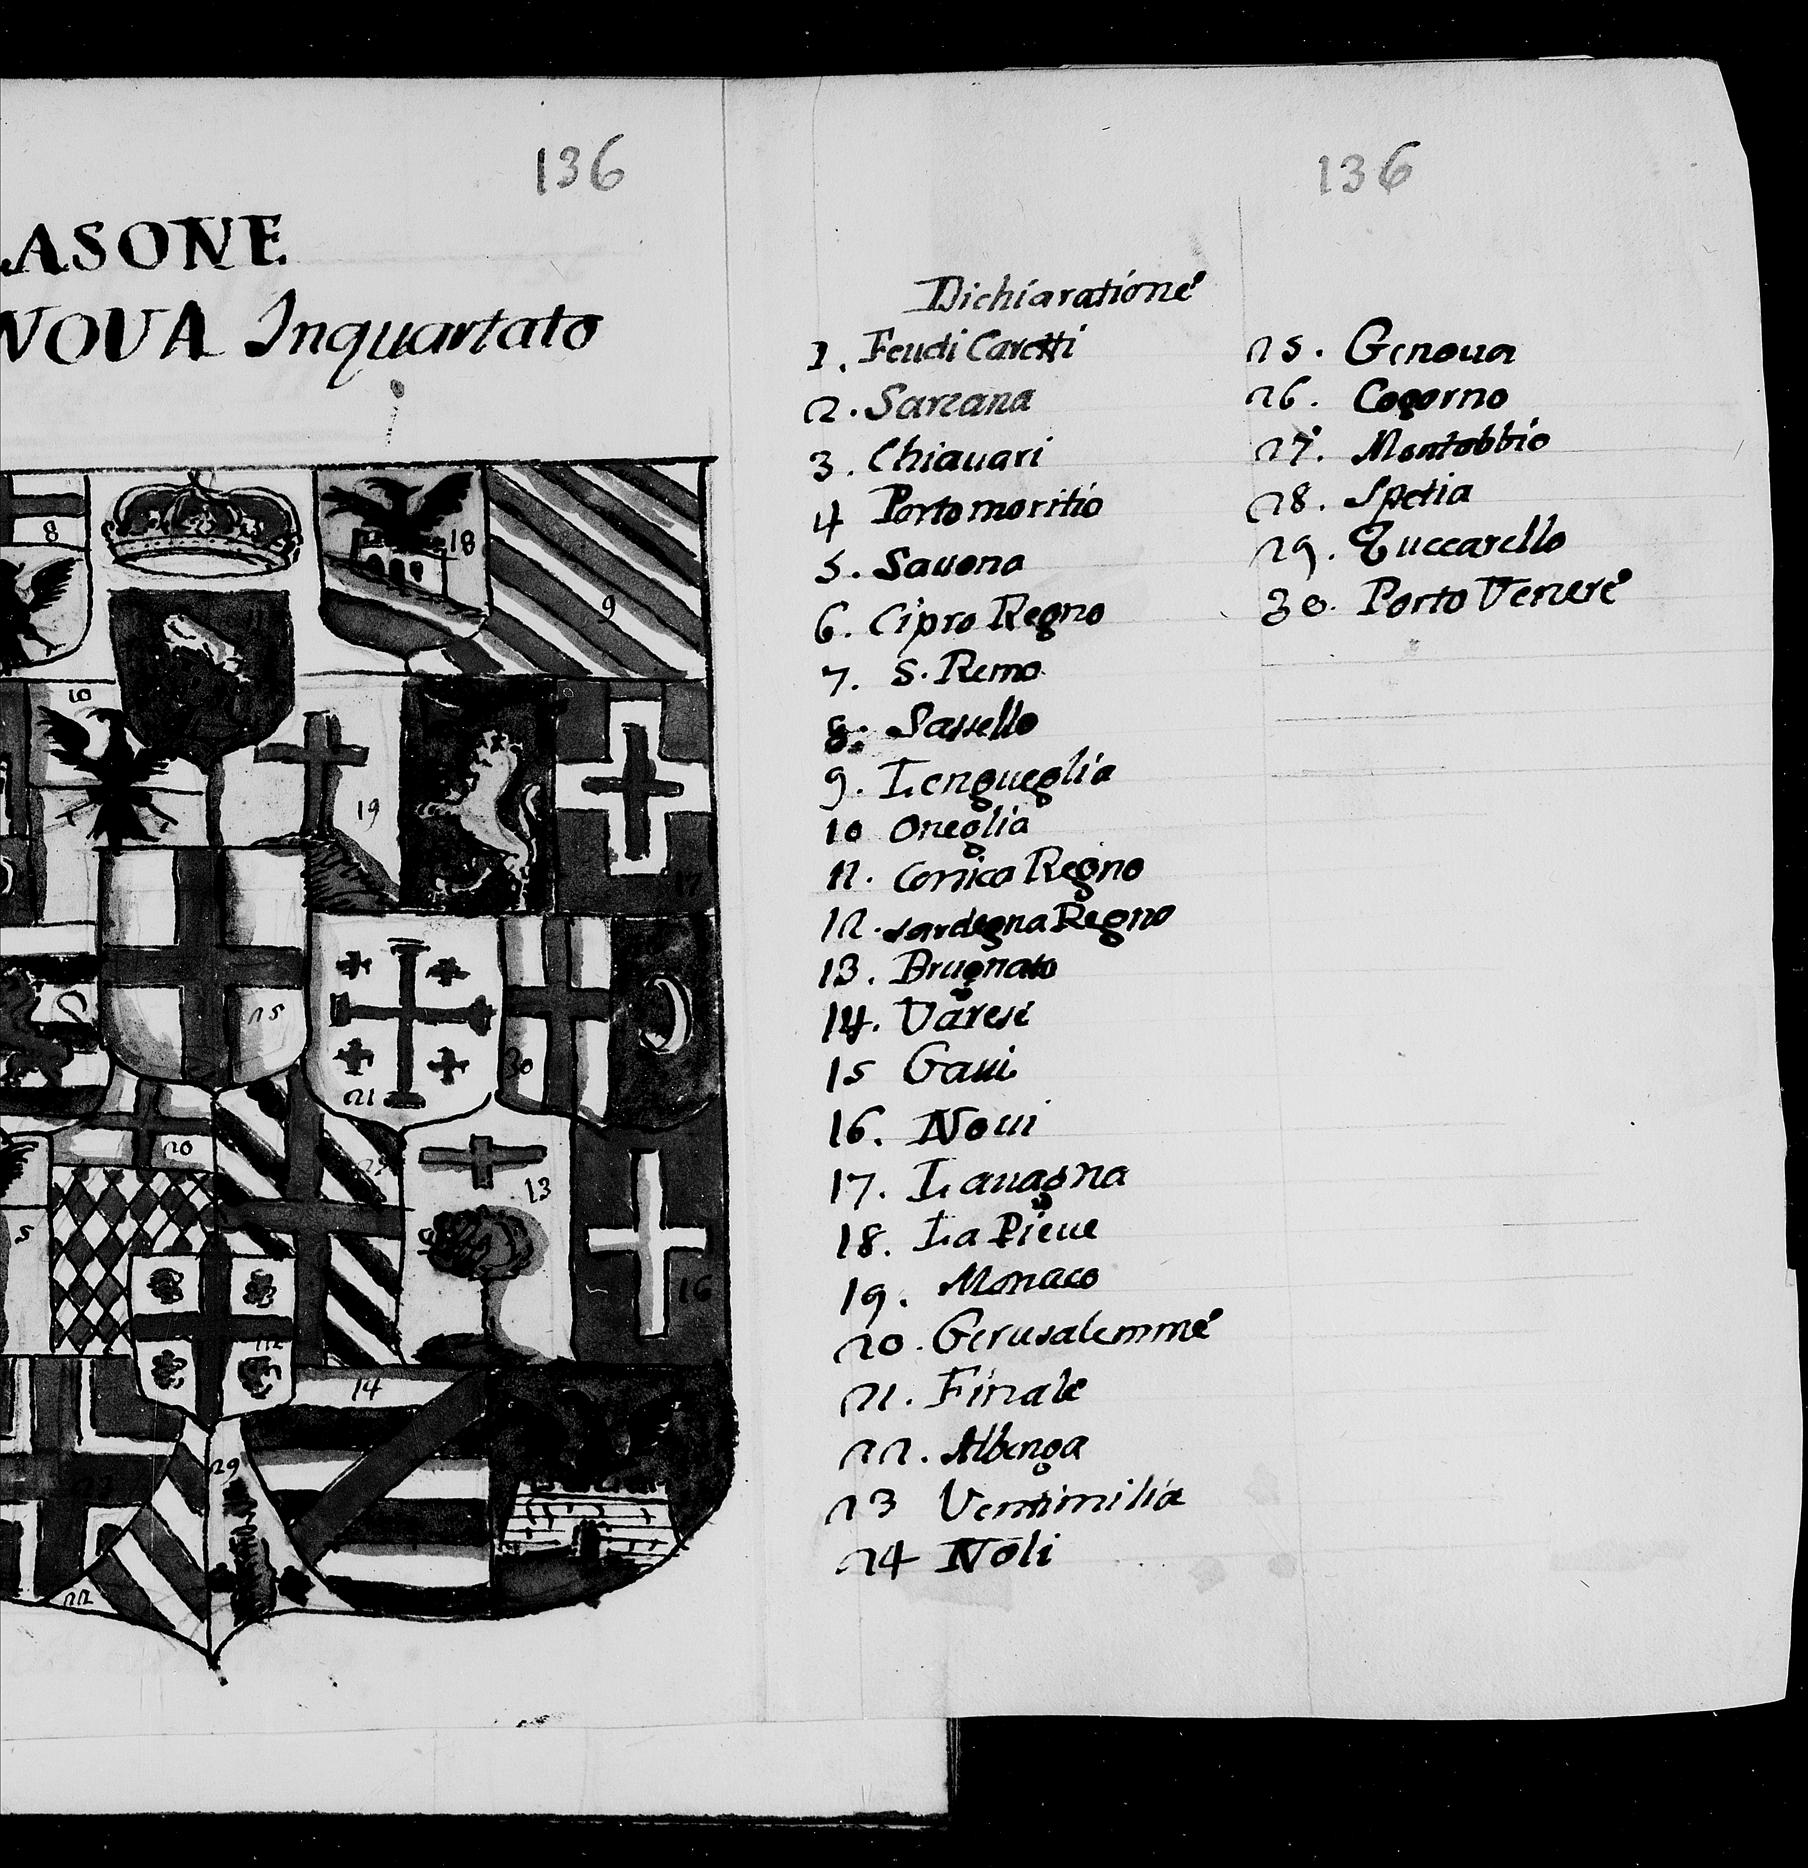 136
ASONE
NOVA Inquartato
8
18
9
11
10
19
17
25
21
30
20
13
5
16
12
14
29
22
136
Dichiaratione
1. Feudi Caretti
2. Sarzana
3. Chiauari
4 Portomoritio
5. Sauona
6. Cipro Regno
7. S. Remo
8. Sassello
9. Lengueglia
10 Oneglia
11. Corsica Regno
12. Sardegna Regno
13. Brugnato
14. Varese
15 Gaui
16. Noui
17. Lauagna
18. La Pieue
19. Monaco
20. Gerusalemme
21. Finale
22. Albenga
23 Ventimilia
24 Noli
25. Genoua
26. Cogorno
27. Montobbio
28. Spetia
29. Zuccarello
30. Porto Venere